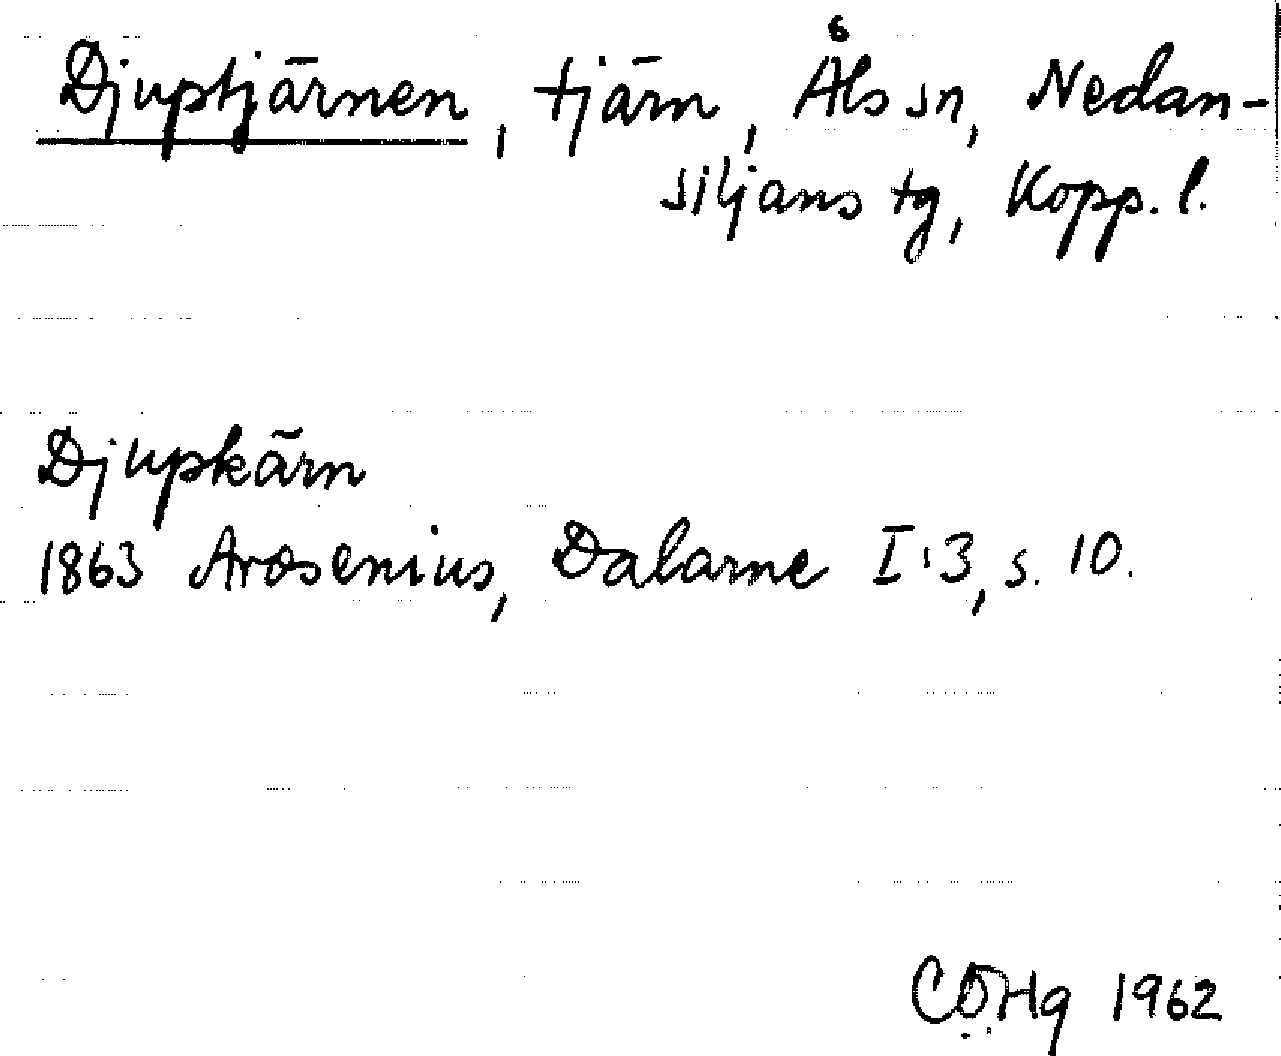 6
Djuptjärnen, tjärn, Åls sn, Nedan-
siljans tg, Kopp. l.
Djupkärn
1863 Arosenius, Dalarne I:3, s. 10.
CÖHg 1962